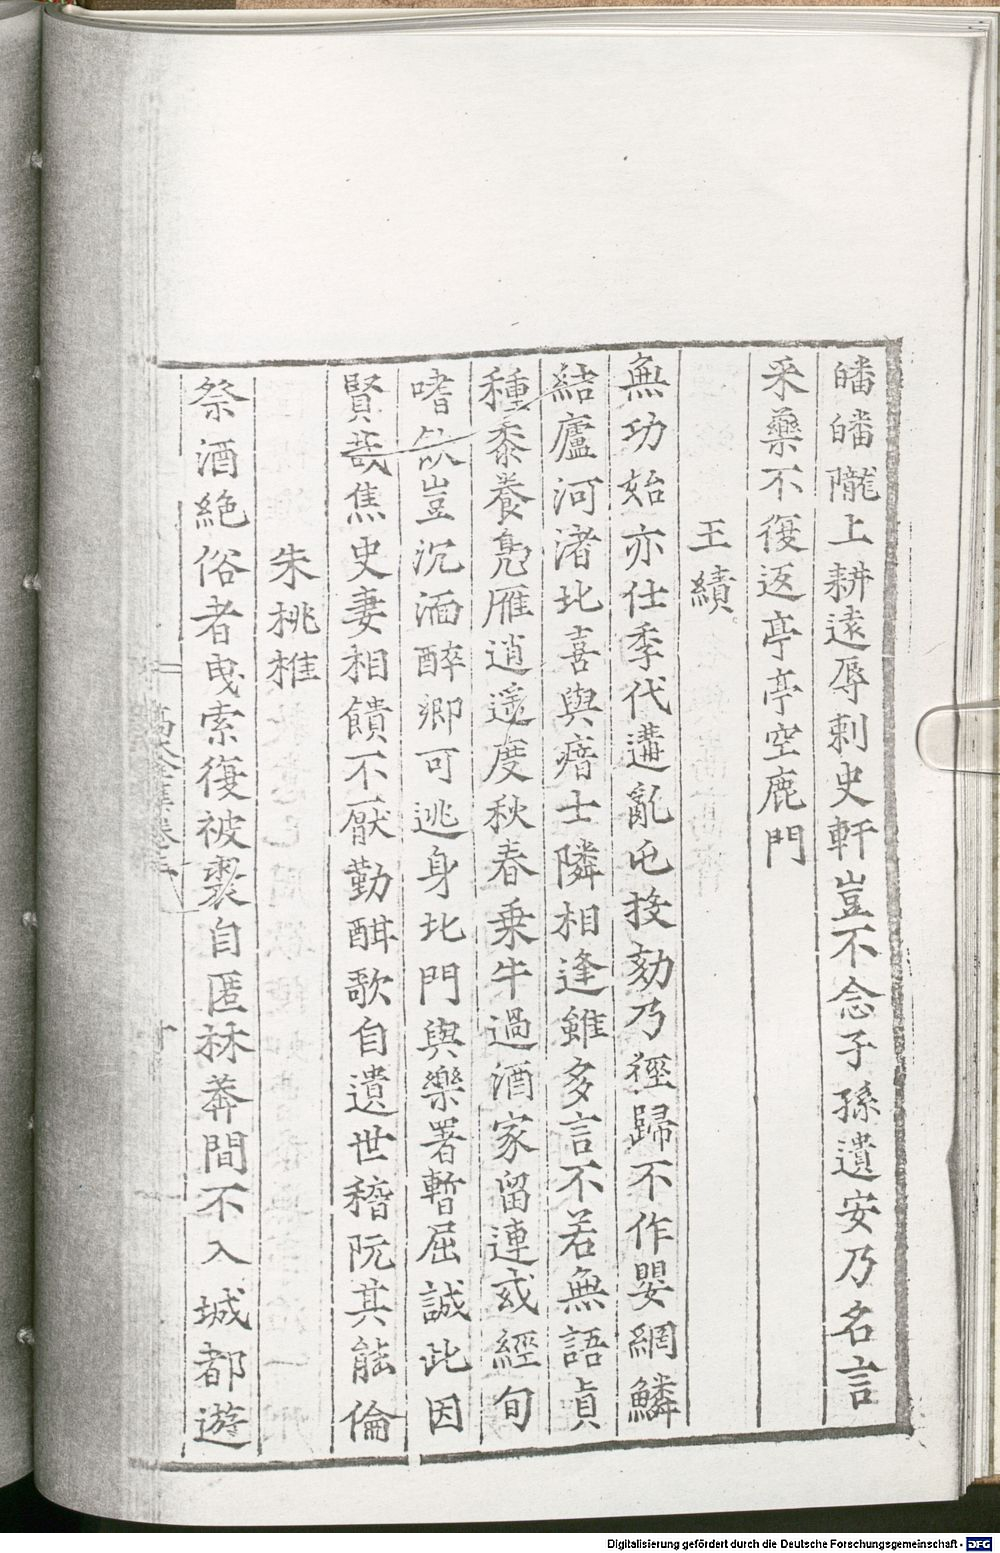 皤皤隴上耕遠辱刺史軒豈不念子孫遺安乃名言
采藥不復返亭亭空鹿門
王績
無功始亦仕季代遘亂屯投劾乃徑歸不作嬰網鱗
結廬河渚北喜與瘖士隣相逢雖多言不若無語貞
種黍養鳧雁逍遥度秋春乗牛過酒家留連或經旬
嗜飲豈沉湎醉鄉可逃身北門與樂署暫屈誠此因
賢哉焦史妻相饋不厭勤酣歌自遺世稽阮其能倫
朱桃椎
祭酒絶俗者曵索復被裘自匿林莽間不入城都遊
Digitalisierung gefördert durch die Deutsche Forschungsgemeinschaft - DFG